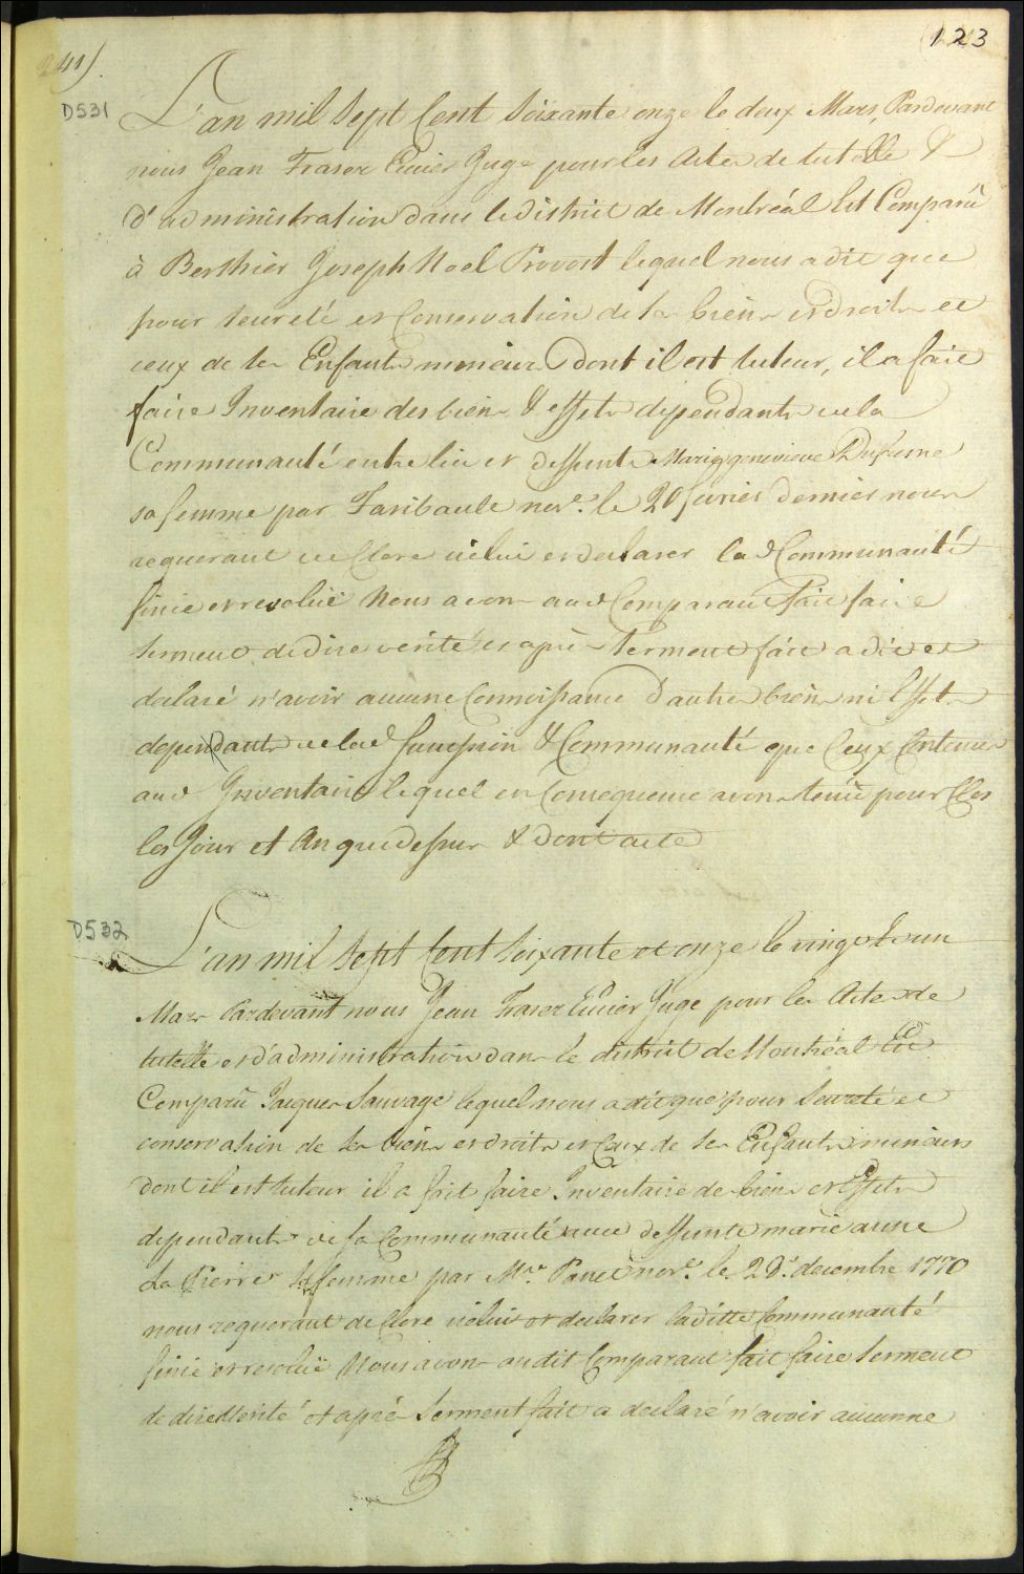 123
41)
D531
L'an mil Sept Cent Soixante onze le deux Mars, Pardevant
nous Jean Fraser Ecuier Juge pour les Actes de tutelle &
d'administration dans le district de Montréal Est Comparû
à Berthier Joseph Noel Provost lequel nous a dit que
pour seureté et Conservation de ses biens et droits et
ceux de ses Enfants mineurs dont il est tuteur, il a fait
faire Inventaire des biens & effets dependants de la
Communauté entre lui et deffunte Marie genevieve Dufresne
sa femme par Faribault nore. le 20 fevrier dernier nous
requerant de Clore icelui et declarer lad Communauté
finie et resolüe Nous avons aud Comparant fait faire
serment de dire verité et après serment fait a dit et
declaré n'avoir aucune Connoissance d'autres biens ni Effets
dependants de lad Succession & Communauté que Ceux Contenus
aud Inventaire lequel en Consequence avons tenû pour Clos
les Jour et An que dessus & dont acte
D532
L'an mil Sept Cent Soixante et onze le vingt un
Mars Pardevant nous Jean Fraser Ecuier Juge pour les Actes de
tutelle et d'administration dans le district de Montréal Est
Comparû Jacques Sauvage lequel nous a dit que pour Seureté et
conservation de ses biens et droits et Ceux de ses Enfants mineurs
dont il est tuteur il a fait faire Inventaire des biens et Effets
dependants de sa Communauté avec deffunte marie anne
La Pierre sa femme par Mre. Panet nore. le 28. decembre 1770
nous requerant de Clore icelui et declarer laditte Communauté
finie et resolüe Nous avons audit Comparant fait faire Serment
de dire Verité et après Serment fait a declaré n'avoir aucunne